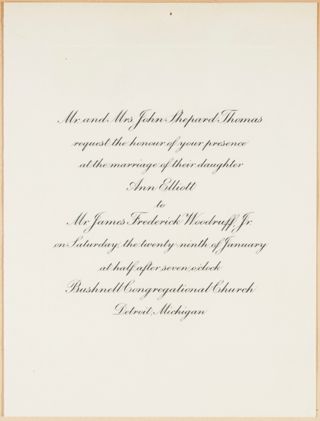 Mr. and Mrs. John Shepard Thomas
request the honour of your presence
at the marriage of their daughter
Ann Elliott
to
Mr. James Frederick Woodruff, Jr.
on Saturday, the twenty-ninth of January
at half after seven o'clock
Bushnell Congregational Church
Detroit, Michigan